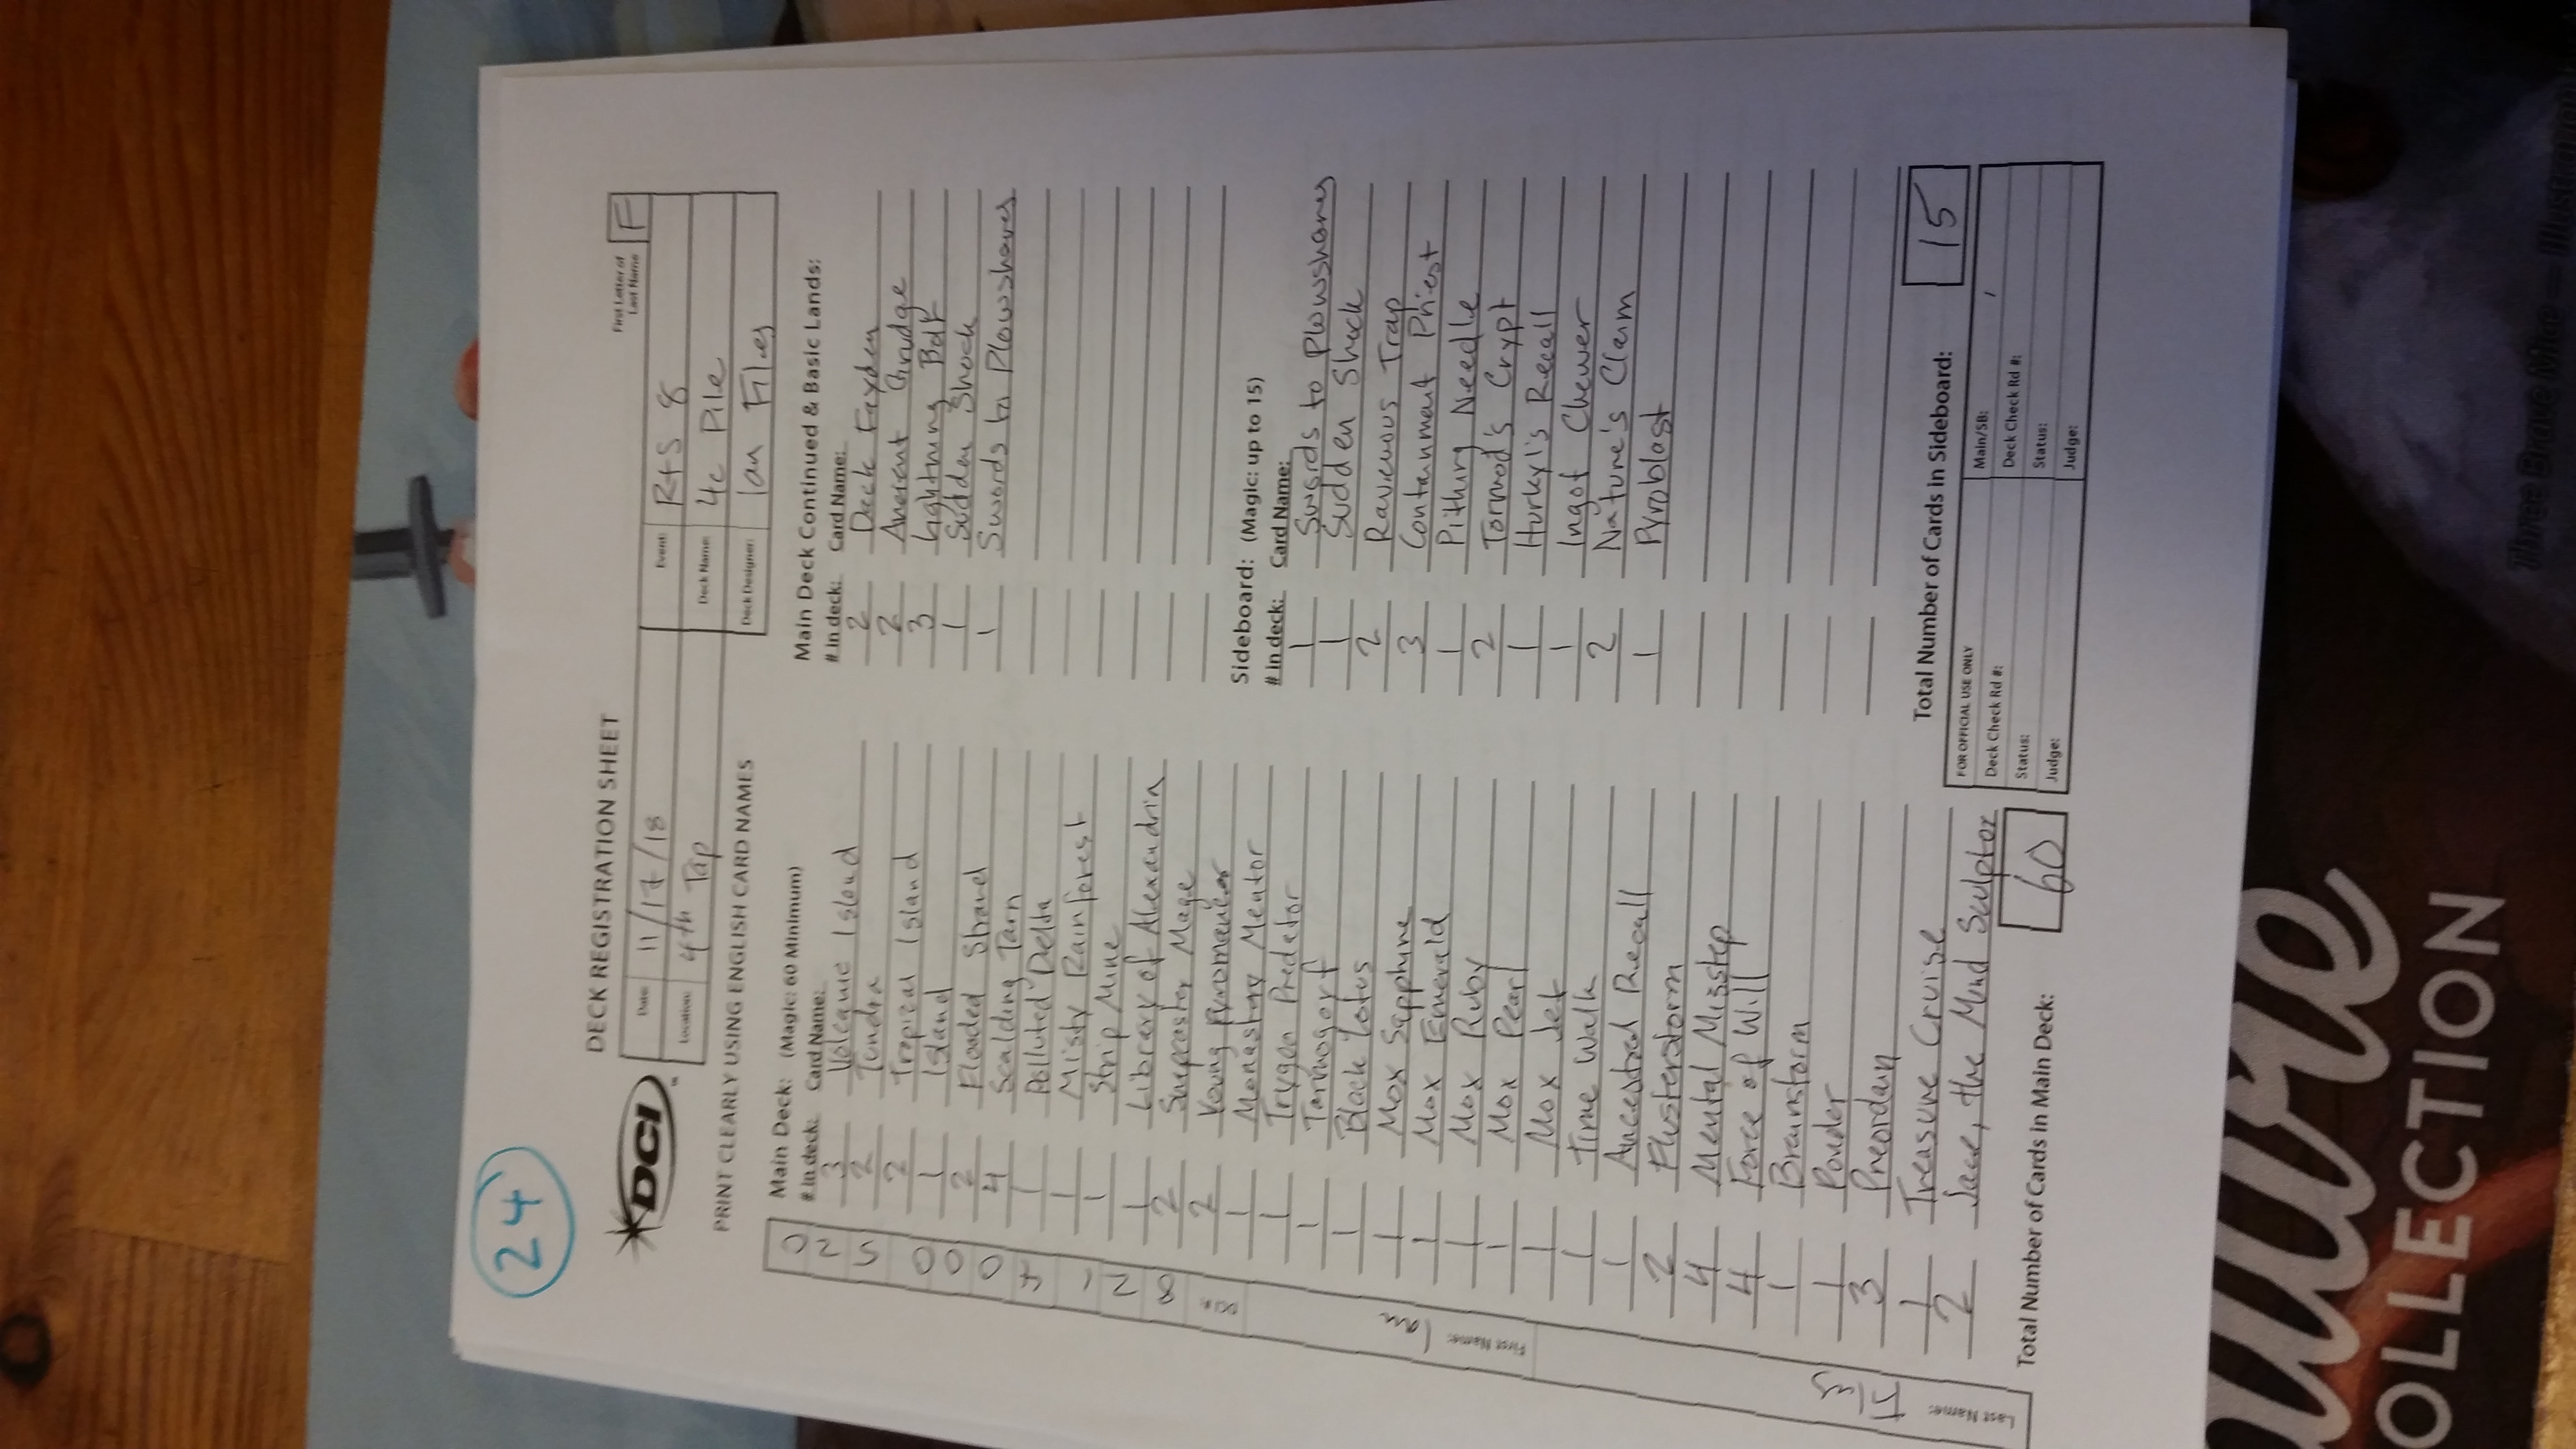 24
DECK REGISTRATION SHEET
First Letter of Last Name F
DCI
Date: 11/17/18
Location: 4th Tap
Event: R+S 8
Deck Name: 4c Pile
Deck Designer: Ian Files
PRINT CLEARLY USING ENGLISH CARD NAMES
Last Name: Files First Name: Ian DCI #: 8214000520
Main Deck: (Magic: 60 Minimum)
# in deck: Card Name:
3 Volcanic Island
2 Tundra
2 Tropical Island
1 Island
2 Flooded Strand
4 Scalding Tarn
1 Polluted Delta
1 Misty Rainforest
1 Strip Mine
1 Library of Alexandria
2 Snapcaster Mage
2 Young Pyromancer
1 Monastery Mentor
1 Trygon Predator
1 Tarmogoyf
1 Black Lotus
1 Mox Sapphire
1 Mox Emerald
1 Mox Ruby
1 Mox Pearl
1 Mox Jet
1 Time Walk
1 Ancestral Recall
2 Flusterstorm
4 Mental Misstep
4 Force of Will
1 Brainstorm
1 Ponder
3 Preordain
1 Treasure Cruise
2 Jace, the Mind Sculptor
Total Number of Cards in Main Deck: 60
Main Deck Continued & Basic Lands:
# in deck: Card Name:
2 Dack Fayden
2 Ancient Grudge
3 Lightning Bolt
1 Sudden Shock
1 Swords to Plowshares
Sideboard: (Magic: up to 15)
# in deck: Card Name:
1 Swords to Plowshares
1 Sudden Shock
2 Ravenous Trap
3 Containment Priest
1 Pithing Needle
2 Tormod's Crypt
1 Hurkyl's Recall
1 Ingot Chewer
2 Nature's Claim
1 Pyroblast
Total Number of Cards in Sideboard: 15
FOR OFFICIAL USE ONLY
Main/SB: /
Deck Check Rd #:
Deck Check Rd #:
Status:
Status:
Judge:
Judge:
OLLECTION
Three Brave Mice —